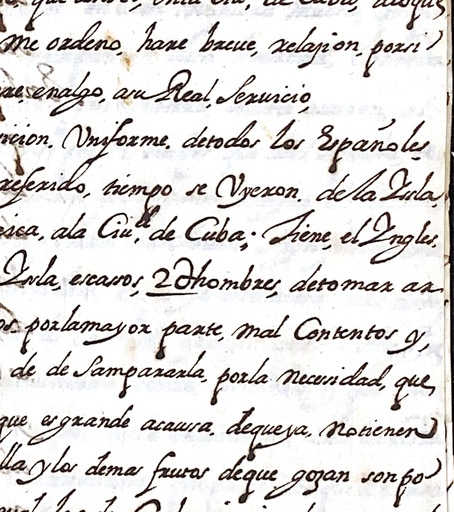 me ordeno, hare breve, relajion, porsi
enalgo, a su Real, Servicio,
Uniforme, detodos los Españoles,
referido, tiempo se Vyeron, de la Ysla
ala Ciu.d de Cuba; Tiene, el Yngles,
Ysla, escasos, hombres, detomar ar
porlamayor parte, mal Contentos y,
de de Sampararla, porla necesidad, que,
que esgrande acausa dequeya, notienen
lla y los demas frutos deque gozan son po